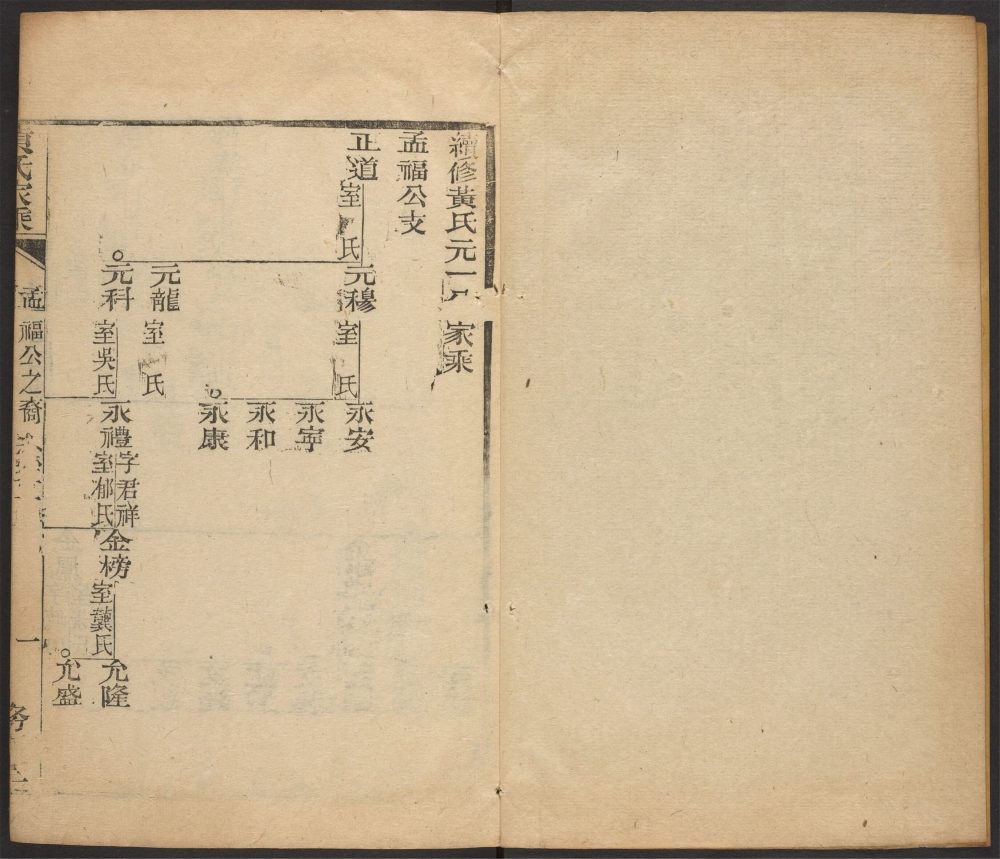 續修黃氏元一 家乘
孟福公支
正道室 氏
元穆室 氏
永安
永寧
永和
永康
元龍室 氏
元科室吳氏
永禮字君祥室郁氏
金榜室龔氏
允隆
允盛
黃氏家乘
孟福公之裔
一